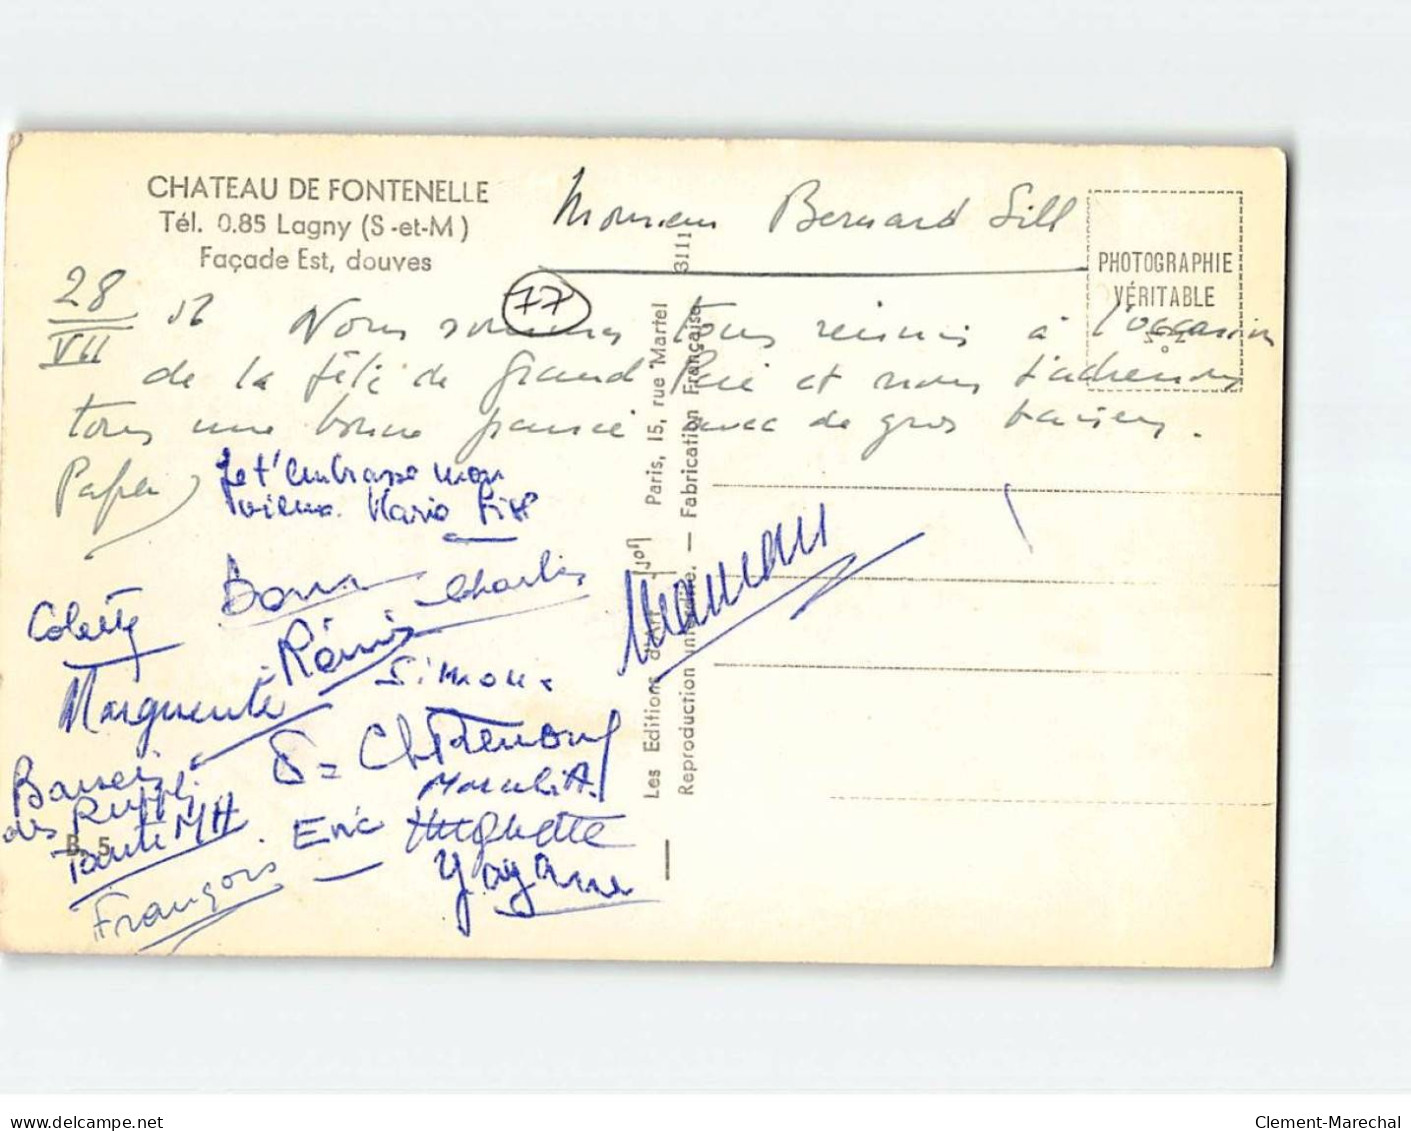 CHATEAU DE FONTENELLE
Tél. 0.85 Lagny (S-et-M)
Façade Est, douves
Monsieur Bernard Sill
PHOTOGRAPHIE
VÉRITABLE
77
28 VII 52 Nous sommes tous réunis à l'occasion
de la fête de Grand Père et nous t'adressons
tous une bonne pensée avec de gros baisers.
Papa
Je t'embrasse mon
vieux. Mario
Colette
Charles
Maman
Rémi
Simone
Marguerite
Baisers
des
Tante MH
Eric
Huguette
Yayane
François
B. 5
Les Editions d'Art Paris, 15, rue Martel 3111
Reproduction interdite. — Fabrication Française
delcampe.net
Clement-Marechal